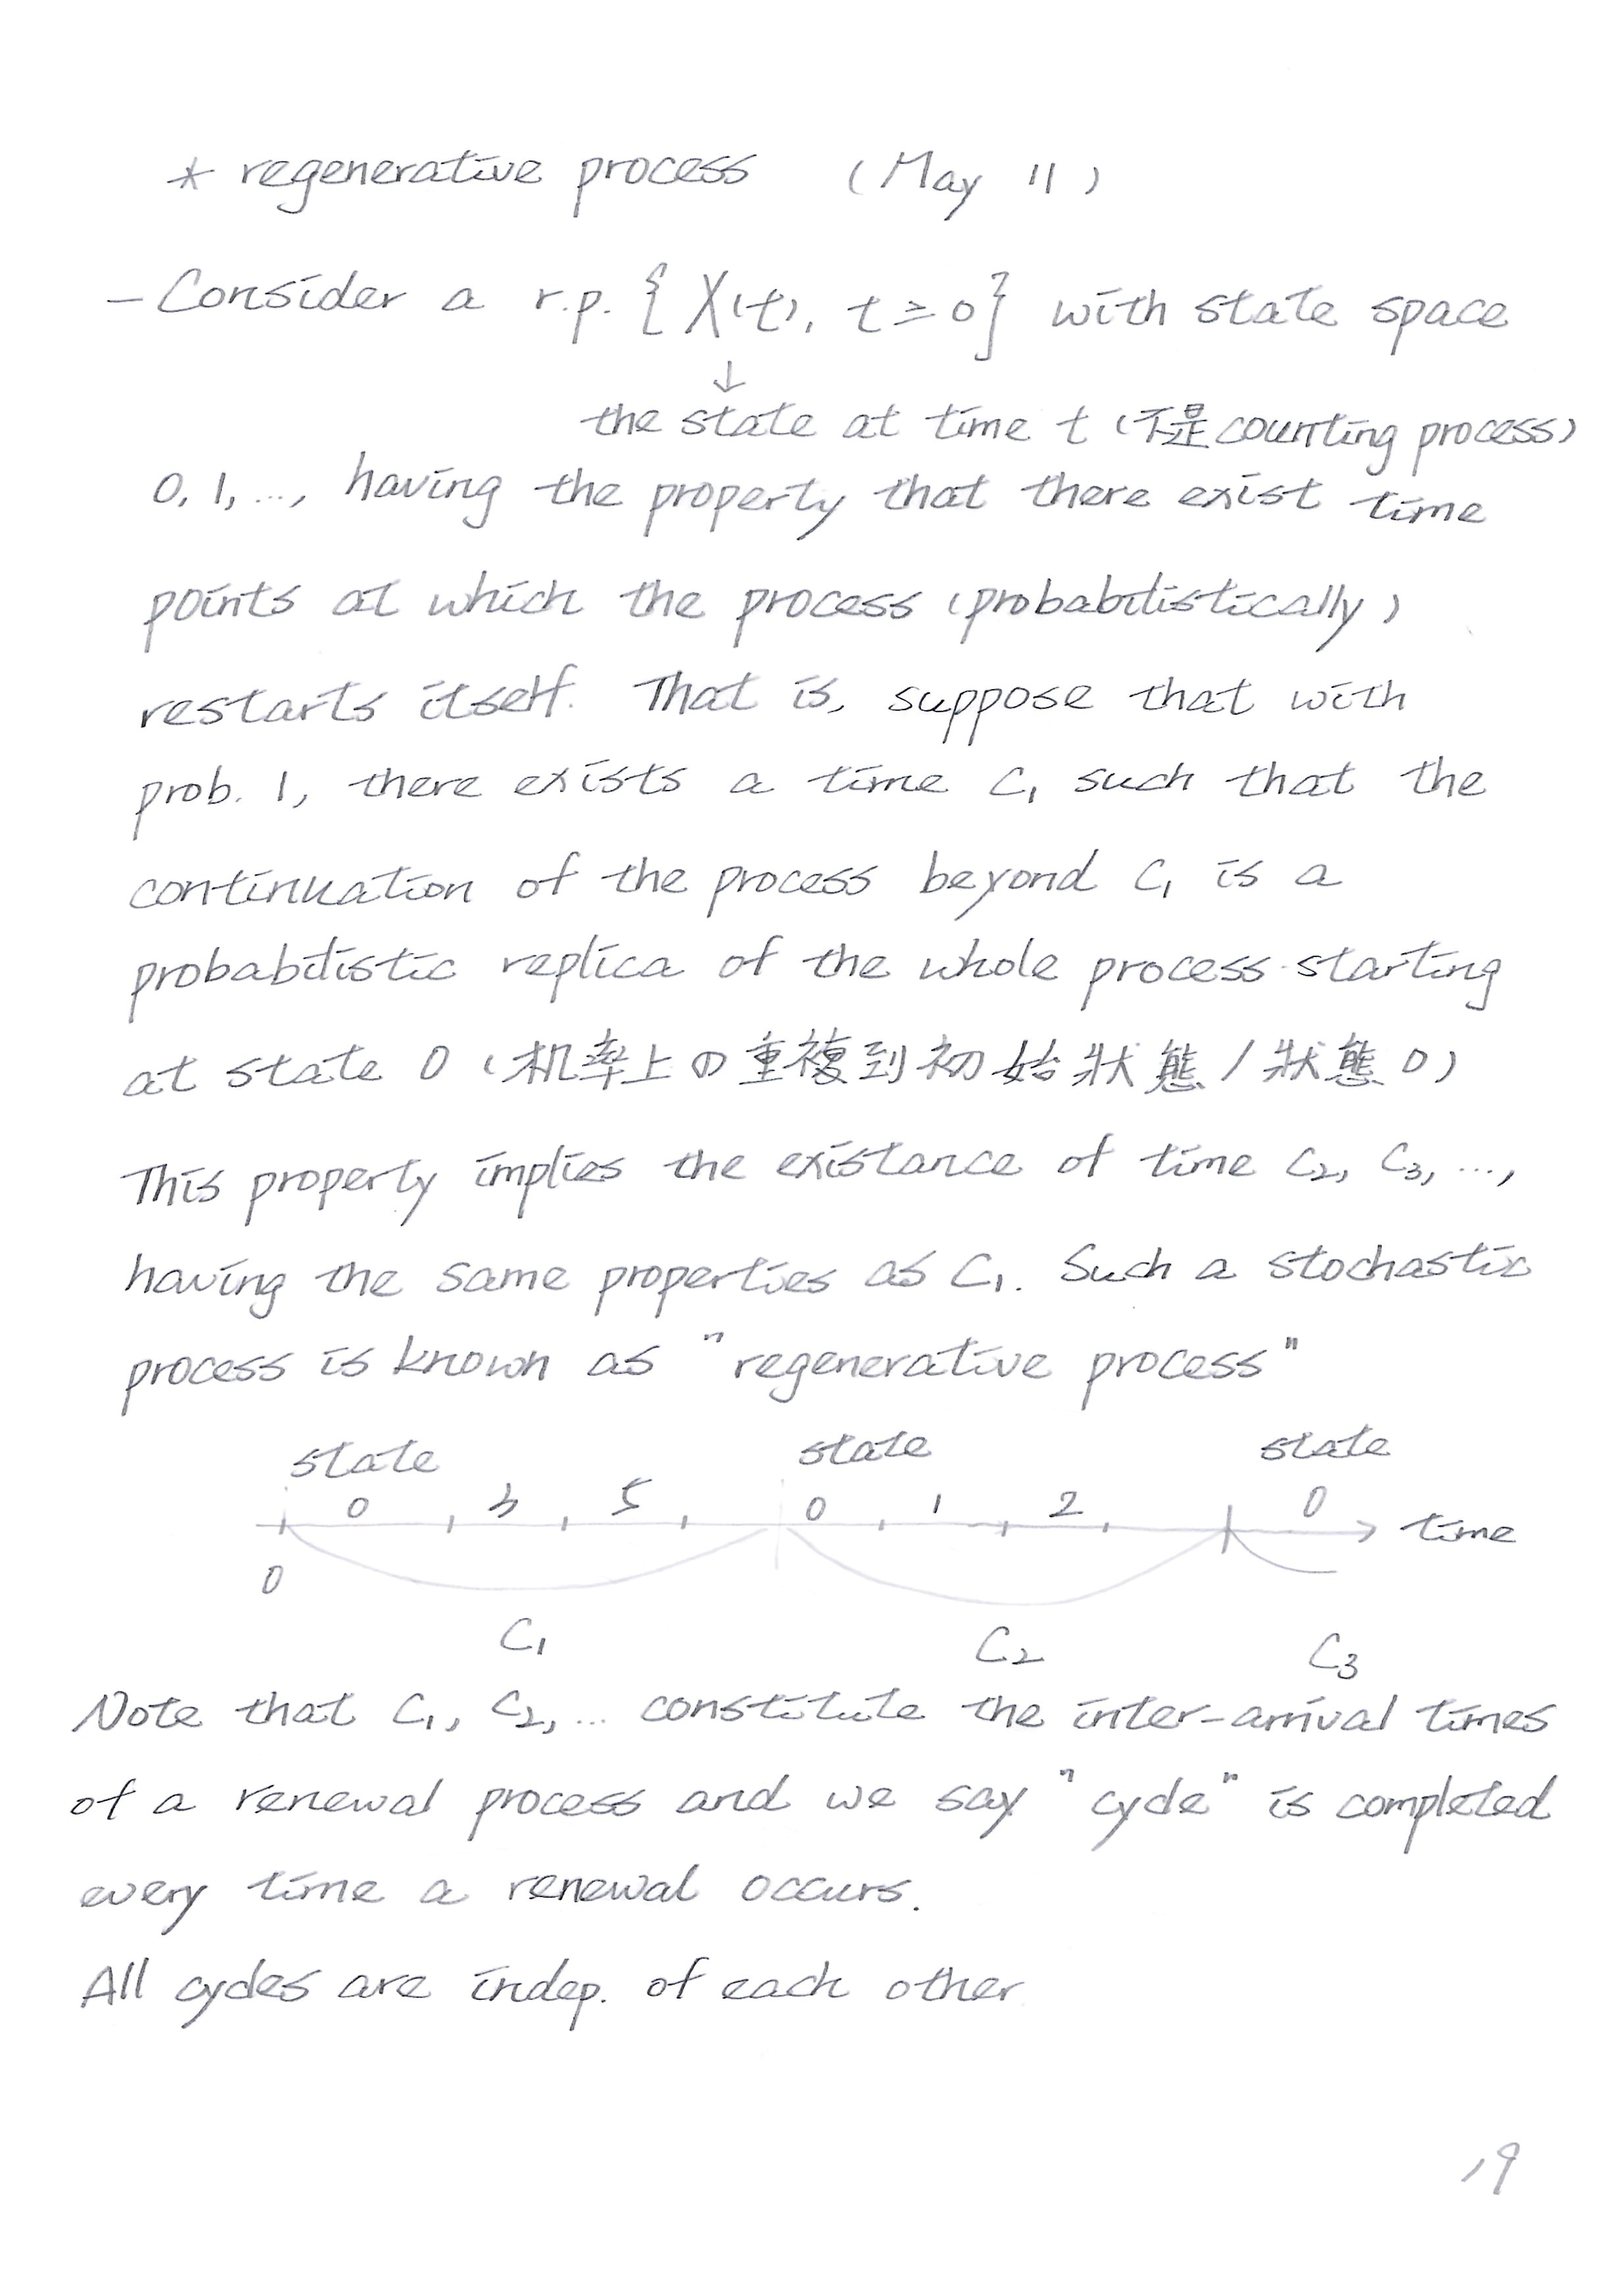 * regenerative process (May 11)
- Consider a r.p. { X(t), t ≥ 0 } with state space
↓
the state at time t (不是 counting process)
0, 1, ..., having the property that there exist time
points at which the process (probabilistically)
restarts itself. That is, suppose that with
prob. 1, there exists a time C₁ such that the
continuation of the process beyond C₁ is a
probabilistic replica of the whole process starting
at state 0 (机率上の重複到初始狀態/狀態0)
This property implies the existance of time C₂, C₃, ...,
having the same properties as C₁. Such a stochastic
process is known as "regenerative process"
state state state
0 3 5 0 1 2 0 time
0
C₁ C₂ C₃
Note that C₁, C₂, ... constitute the inter-arrival times
of a renewal process and we say "cycle" is completed
every time a renewal occurs.
All cycles are indep. of each other
19